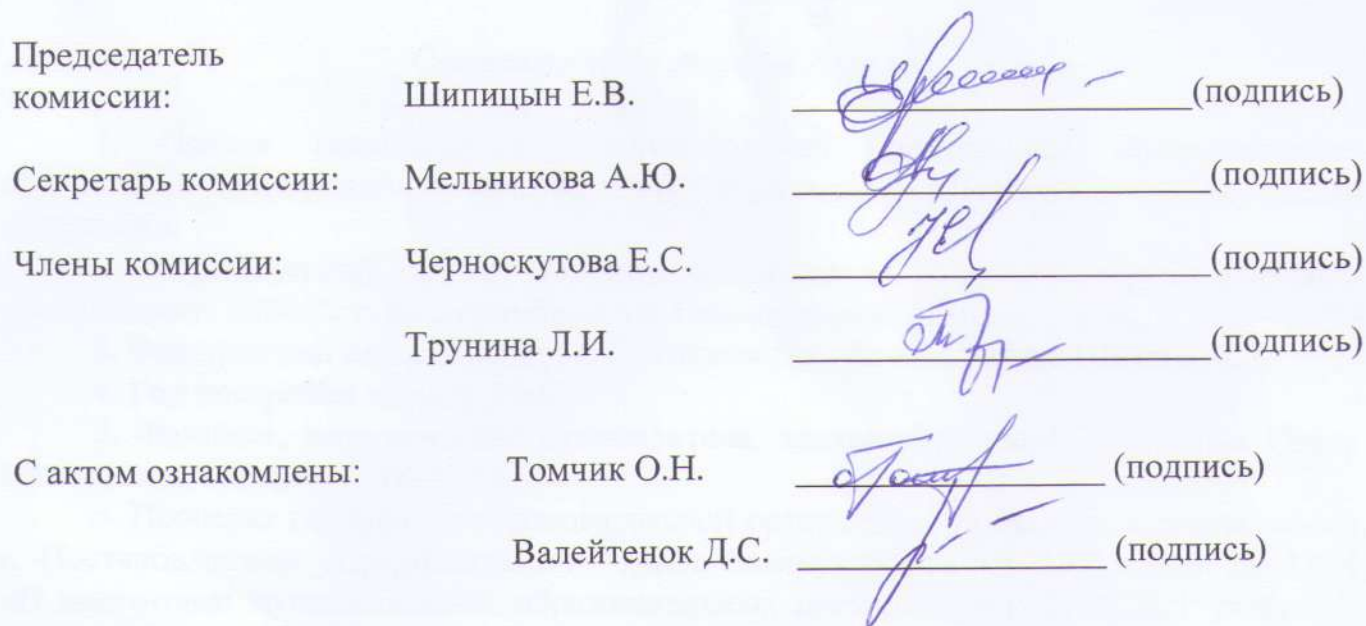 Председатель
комиссии: Шипицын Е.В. (подпись)
Секретарь комиссии: Мельникова А.Ю. (подпись)
Члены комиссии: Черноскутова Е.С. (подпись)
Трунина Л.И. (подпись)
С актом ознакомлены: Томчик О.Н. (подпись)
Валейтенок Д.С. (подпись)